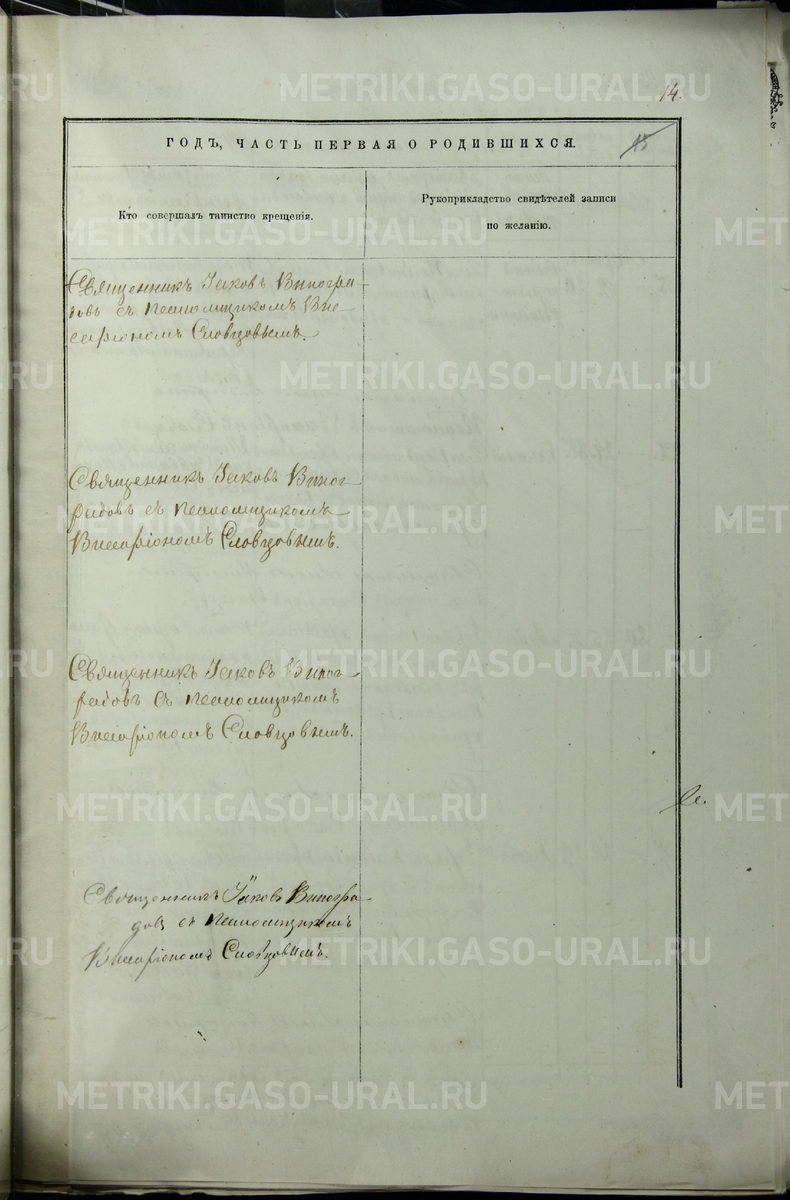 14.
ГОДЪ, ЧАСТЬ ПЕРВАЯ О РОДИВШИХСЯ.
15
Кто совершалъ таинство крещенія.
Рукоприкладство свидѣтелей записи
по желанію.
Священникъ Іаковъ Виногра
довъ съ псаломщикомъ Вис-
саріономъ Словцовымъ.
Священникъ Іаковъ Виног
радовъ съ псаломщикомъ
Виссаріономъ Словцовымъ.
Священникъ Іаковъ Виног-
радовъ съ псаломщикомъ
Виссаріономъ Словцовымъ.
Священникъ Іаковъ Виногра-
довъ съ псаломщикомъ
Виссаріономъ Словцовымъ.
METRIKI.GASO-URAL.RU